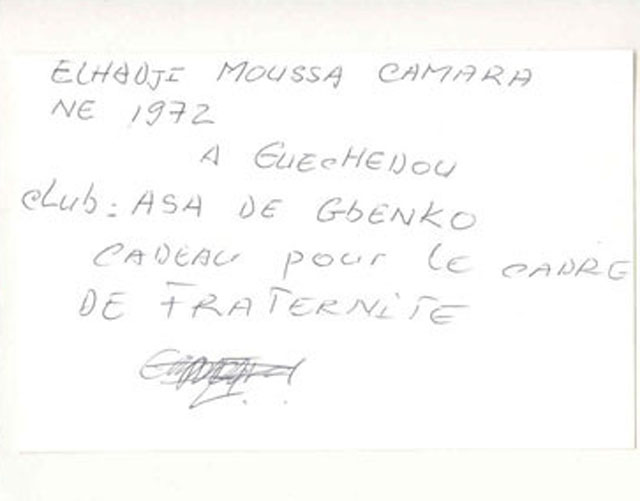 ELHADJI MOUSSA CAMARA
NE 1972
A GUECHEDOU
club: ASA DE GbENKO
CADEAU pour le CADRE
DE FRATERNITE